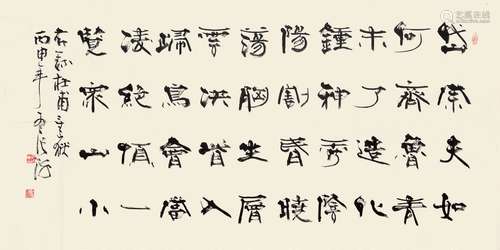 岱宗夫如
何齊魯青
未了造化
鍾神秀陰
陽割昏曉
蕩胸生層
雲決眥入
歸鳥會當
凌絕頂一
覽眾山小
右錄杜甫望嶽
丙申年